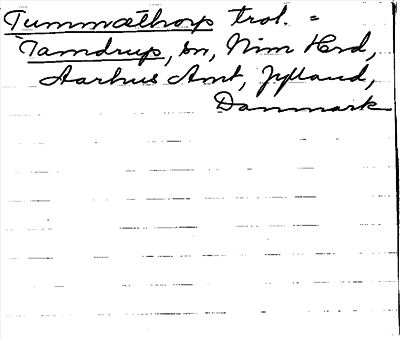 Tummæthorp trol. =
Tamdrup, sn, Nim Hrd,
Aarhus Amt, Jylland,
Danmark